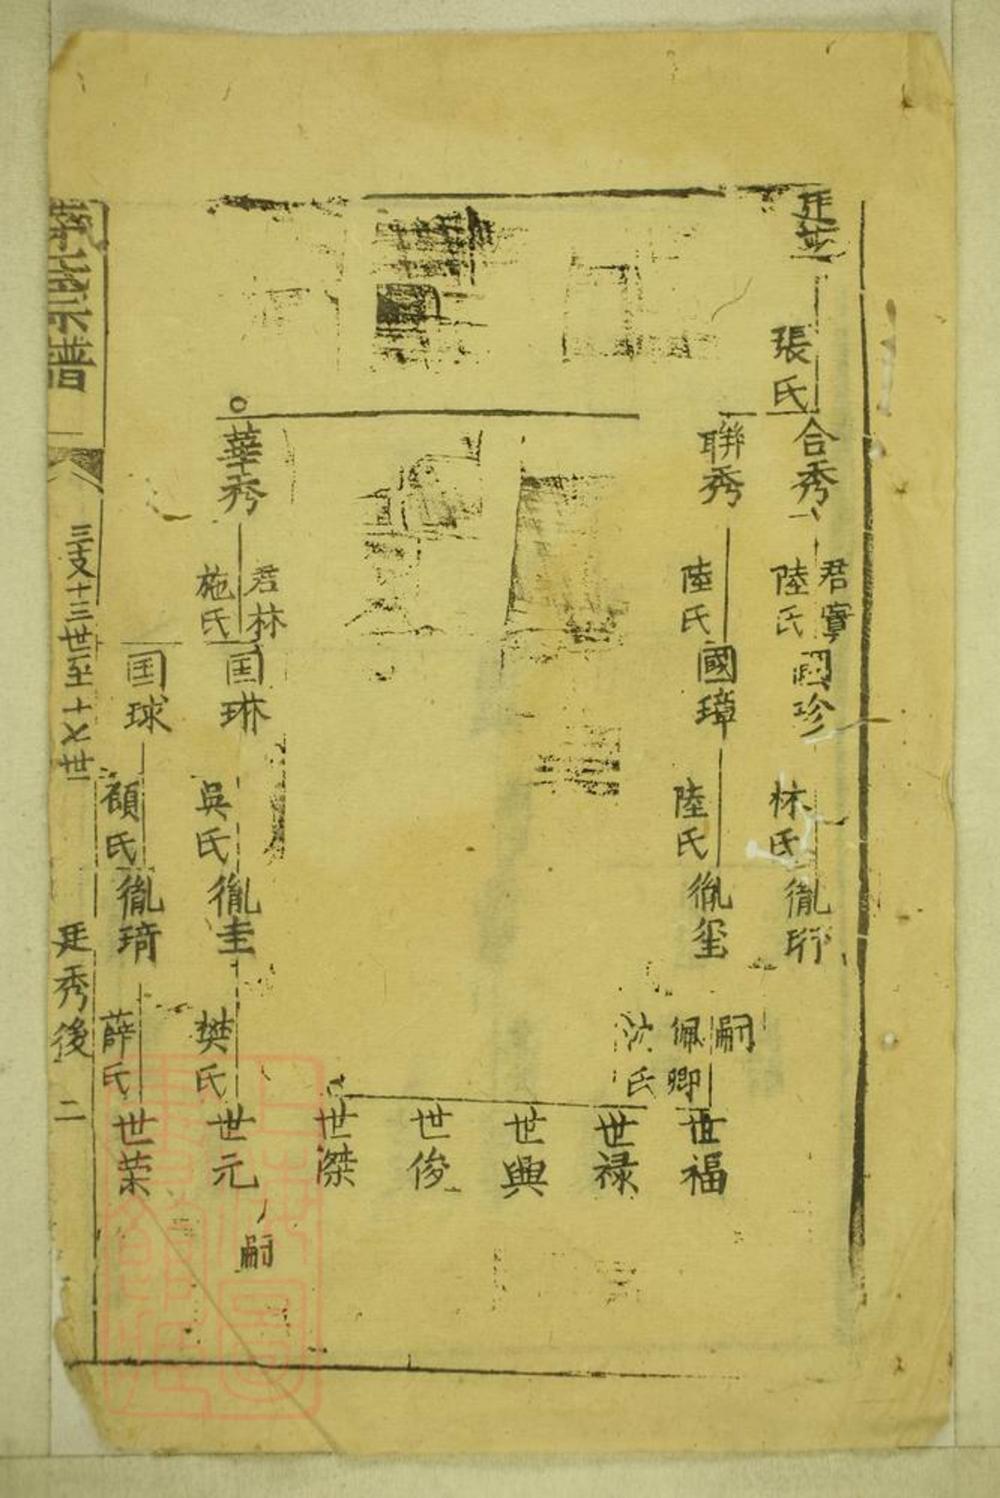 張氏
合秀
君寧
陸氏
國珍
林氏
胤珩
聨秀
陸氏
國璋
陸氏
胤玺
嗣
佩卿
沈氏
世福
世禄
世興
世俊
世傑
華秀
君林
施氏
国琳
吳氏
胤圭
樊氏
世元
嗣
国球
顧氏
胤琦
薛氏
世荣
氏宗譜
三支十三世至十七世
廷秀後
二